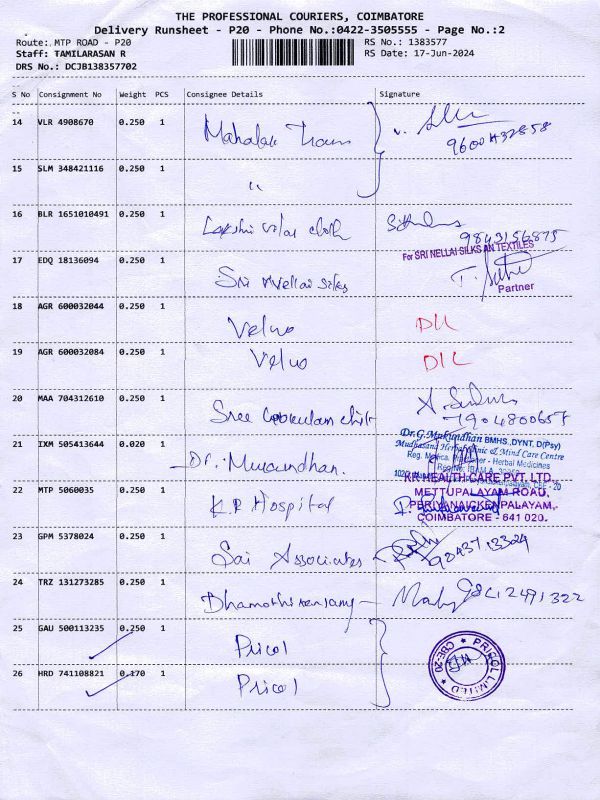 THE PROFESSIONAL COURIERS, COIMBATORE
Delivery Runsheet - P20 - Phone No.:0422-3505555 - Page No.:2
Route: MTP ROAD - P20 RS No.: 1383577
Staff: TAMILARASAN R RS Date: 17-Jun-2024
DRS No.: DCJB138357702
S No Consignment No Weight PCS Consignee Details Signature
14 VLR 4908670 0.250 1
15 SLM 348421116 0.250 1 "
16 BLR 1651010491 0.250 1 9843156875
For SRI NELLAI SILKS AN TEXTILES
17 EDQ 18136094 0.250 1 Sri Nellai silks
Partner
18 AGR 600032044 0.250 1 Velus DIL
19 AGR 600032084 0.250 1 Velus DIL
20 MAA 704312610 0.250 1 Sree 7904800657
Dr.G.Mukundhan BMHS.,DYNT, D(Psy)
Mudhasana Herbal Clinic & Mind Care Centre
21 IXM 505413644 0.020 1 Dr. Mukundhan.
Herbal Medicines
KR HEALTH CARE PVT LTD
22 MTP 5060035 0.250 1 K.R Hospital METTUPALAYAM ROAD,
PERIYANAICKENPALAYAM,
COIMBATORE - 641 020.
23 GPM 5378024 0.250 1 Sai Associates 9843713324
24 TRZ 131273285 0.250 1
25 GAU 500113235 0.250 1 Pricol
PRICOL LIMITED CBE-20
26 HRD 741108821 0.170 1 Pricol